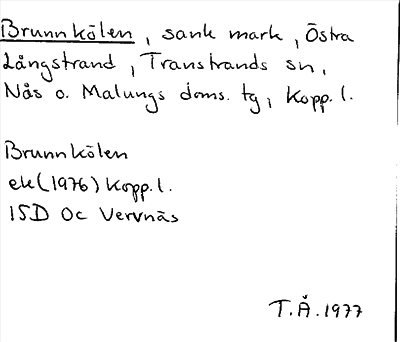 Brunnkölen, sank mark, Östra
Långstrand, Transtrands sn,
Nås o. Malungs doms. tg, Kopp. l.
Brunnkölen
ek(1976) Kopp. l.
15D Oc Vervnäs
T.Å. 1977